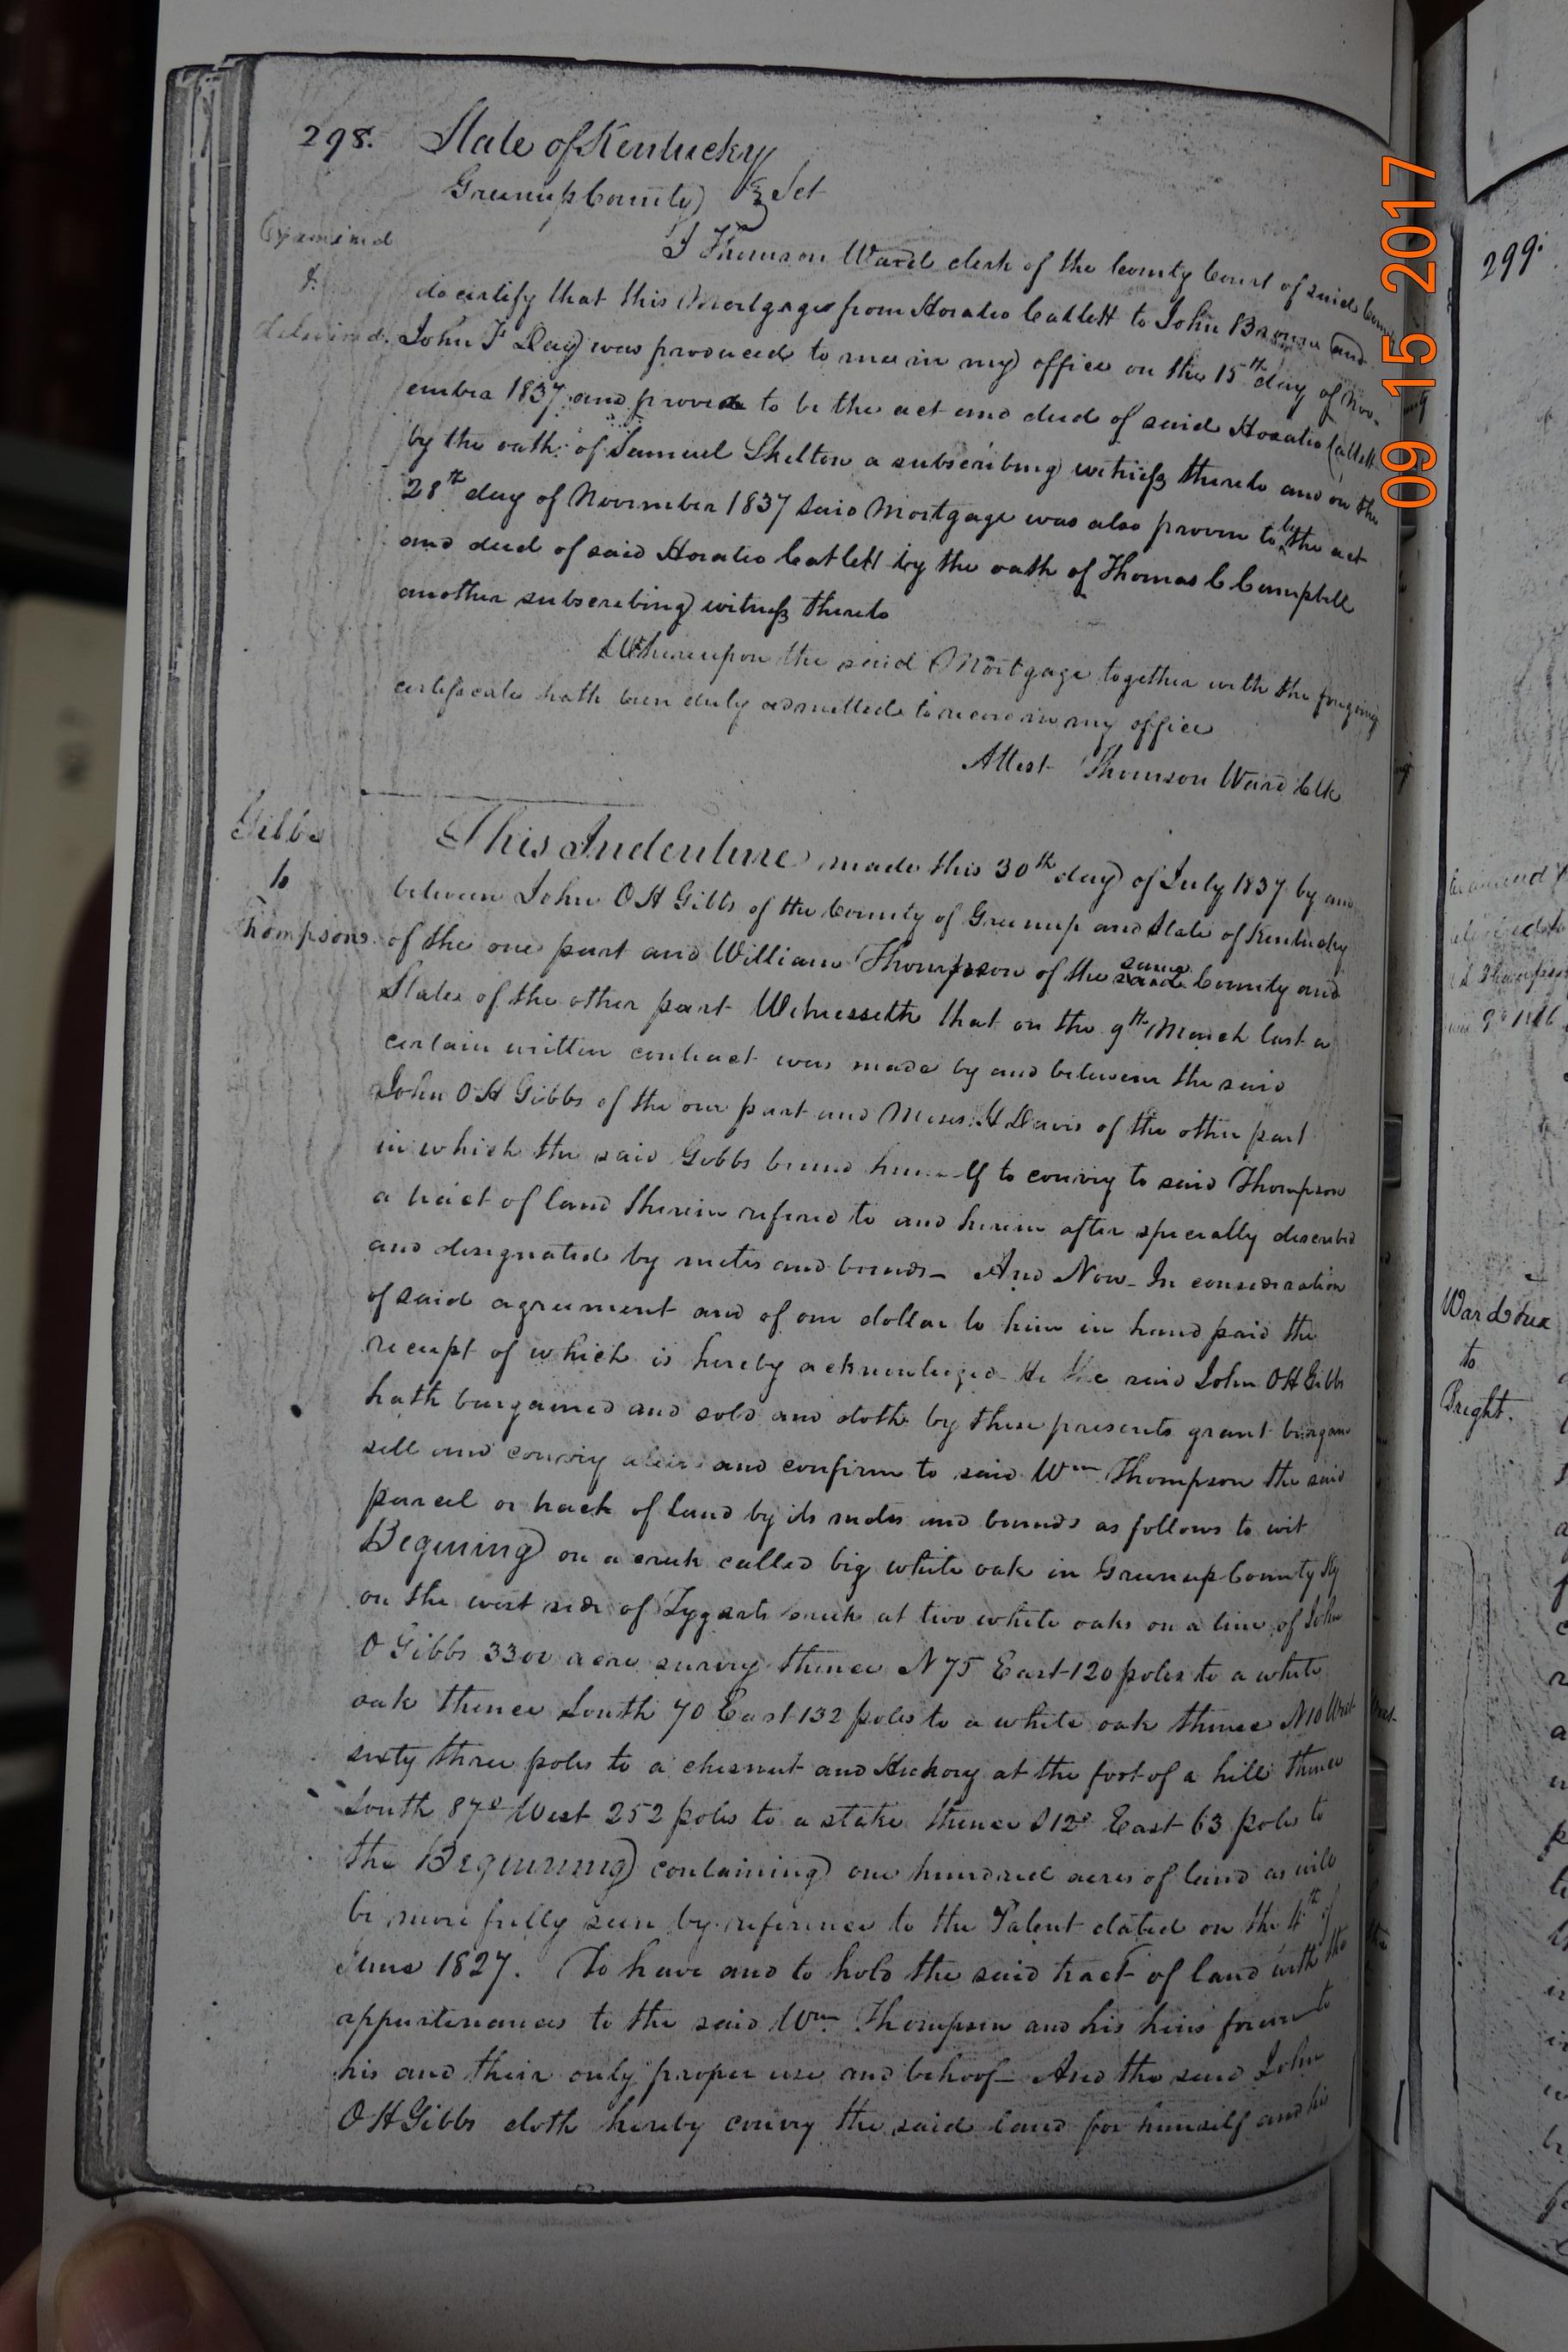 298. State of Kentucky
Greenup County } Sct
Examined
&
delivered.
I Thomson Ward clerk of the County Court of said
do certify that this Mortgage from Horatio Catlett to John Brown and
John F Day was produced to me in my office on the 15th day of Nov-
ember 1837 and proven to be the act and deed of said Horatio Catlett
by the oath of Samuel Shelton a subscribing witness thereto and on the
28th day of November 1837 said Mortgage was also proven to be the act
and deed of said Horatio Catlett by the oath of Thomas C Campbell
another subscribing witness thereto
Whereupon the said Mortgage together with the foregoing
certificate hath been duly admitted to record in my office
Attest Thomson Ward Clk
Gibbs
to
Thompson.
This Indenture made this 30th day of July 1837 by and
between John O H Gibbs of the County of Greenup and State of Kentucky
of the one part and William Thompson of the same County and
State of the other part Witnesseth that on the 9th March last a
certain written contract was made by and between the said
John O H Gibbs of the one part and Moses H Davis of the other part
in which the said Gibbs bound himself to convey to said Thompson
a tract of land therein refered to and herein after specially described
and designated by metes and bounds - And Now - In consideration
of said agreement and of one dollar to him in hand paid the
receipt of which is hereby acknowledged He the said John O H Gibbs
hath bargained and sold and doth by these presents grant bargain
sell and convey alien and confirm to said Wm Thompson the said
parcel or track of land by its metes and bounds as follows to wit
Begining on a creek called big white oak in Greenup County Ky
on the west side of Tygarts creek at two white oaks on a line of John
O Gibbs 3300 acre survey thence N 75 East 120 poles to a white
oak thence South 70 East 132 poles to a white oak thence N 10 West
sixty three poles to a chesnut and Hickory at the foot of a hill thence
South 87° West 252 poles to a stake thence S 12° East 63 poles to
the Beginning containing one hundred acres of land as will
be more fully seen by reference to the Patent dated on the 4th of
June 1827. To have and to hold the said tract of land with the
appurtenances to the said Wm Thompson and his heirs forever to
his and their only proper use and behoof - And the said John
O H Gibbs doth hereby convey the said land for himself and his
09 15 2017
299.
Ward &ux
to
Bright.